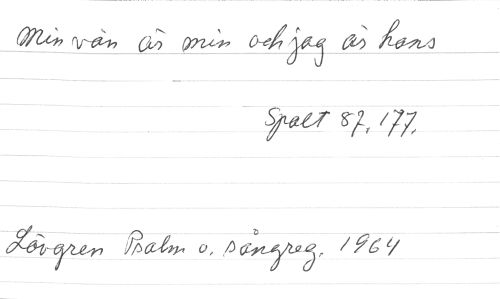 Min vän är min och jag är hans
Spalt 87, 177.
Lövgren Psalm o. sångreg. 1964